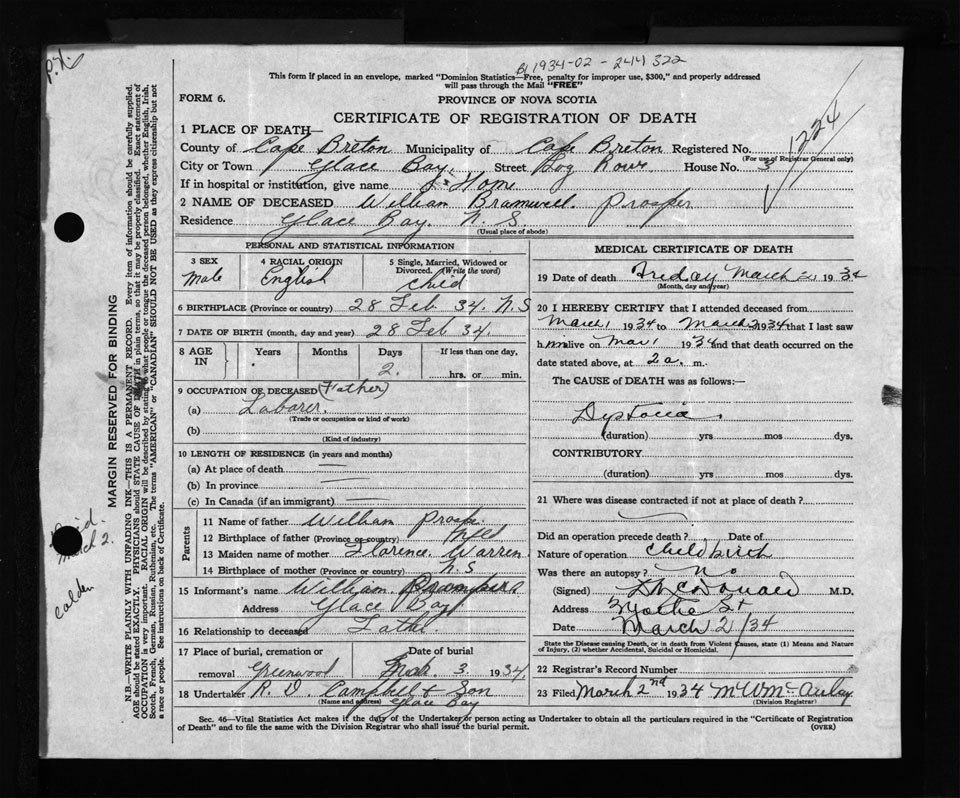 B1934-02-244322
P.X.
This form if placed in an envelope, marked "Dominion Statistics—Free, penalty for improper use, $300," and properly addressed
will pass through the Mail "FREE"
FORM 6.
PROVINCE OF NOVA SCOTIA
CERTIFICATE OF REGISTRATION OF DEATH
1224
1 PLACE OF DEATH—
County of Cape Breton Municipality of Cape Breton Registered No.
(For use of Registrar General only)
City or Town Glace Bay, Street Dog Row. House No. 3
If in hospital or institution, give name Home
2 NAME OF DECEASED William Bramwell Prosper
Residence Glace Bay. N. S.
(Usual place of abode)
PERSONAL AND STATISTICAL INFORMATION
3 SEX 4 RACIAL ORIGIN 5 Single, Married, Widowed or
Divorced. (Write the word)
Male English Child
6 BIRTHPLACE (Province or country) 28 Feb 34. N.S
7 DATE OF BIRTH (month, day and year) 28 Feb 34.
8 AGE IN Years Months Days If less than one day,
2. hrs. or min.
9 OCCUPATION OF DECEASED (Father)
(a) Laborer.
(Trade or occupation or kind of work)
(b)
(Kind of industry)
10 LENGTH OF RESIDENCE (in years and months)
(a) At place of death —
(b) In province —
(c) In Canada (if an immigrant) —
Parents
11 Name of father William
12 Birthplace of father (Province or country) Nfld
13 Maiden name of mother Florence Warren
14 Birthplace of mother (Province or country) N.S
15 Informant's name William
Address Glace Bay
16 Relationship to deceased Father
17 Place of burial, cremation or Date of burial
removal Greenwood Mar 3. 1934.
18 Undertaker R. D. Campbell & Son
(Name and address) Glace Bay
MEDICAL CERTIFICATE OF DEATH
19 Date of death Friday March 2 1934
(Month, day and year)
20 I HEREBY CERTIFY that I attended deceased from
March 1 1934 to March 2 1934 that I last saw
him alive on Mar 1 1934 and that death occurred on the
date stated above, at 2 a. m.
The CAUSE OF DEATH was as follows:—
Dystocia
(duration) yrs mos dys.
CONTRIBUTORY
(duration) yrs mos dys.
21 Where was disease contracted if not at place of death?
Did an operation precede death? Date of
Nature of operation Childbirth
Was there an autopsy? no
(Signed) McDonald M.D.
Address St
Date March 2/34
State the Disease causing Death, or in death from Violent Causes, state (1) Means and Nature
of Injury, (2) whether Accidental, Suicidal or Homicidal.
22 Registrar's Record Number
23 Filed March 2nd 1934 M W McAulay
(Division Registrar)
Sec. 46—Vital Statistics Act makes it the duty of the Undertaker or person acting as Undertaker to obtain all the particulars required in the "Certificate of Registration
of Death" and to file the same with the Division Registrar who shall issue the burial permit. (OVER)
MARGIN RESERVED FOR BINDING
N.B.—WRITE PLAINLY WITH UNFADING INK—THIS IS A PERMANENT RECORD. Every item of information should be carefully supplied.
AGE should be stated EXACTLY. PHYSICIANS should STATE CAUSE OF DEATH in plain terms, so that it may be properly classified. Exact statement of
OCCUPATION is very important. RACIAL ORIGIN will be described by stating to what people or tongue the deceased person belonged, whether English, Irish,
Scotch, French, German, Russian, Ruthenian, etc. The terms "AMERICAN" or "CANADIAN" SHOULD NOT BE USED as they express citizenship but not
a race or people. See instructions on back of Certificate.
March 2.